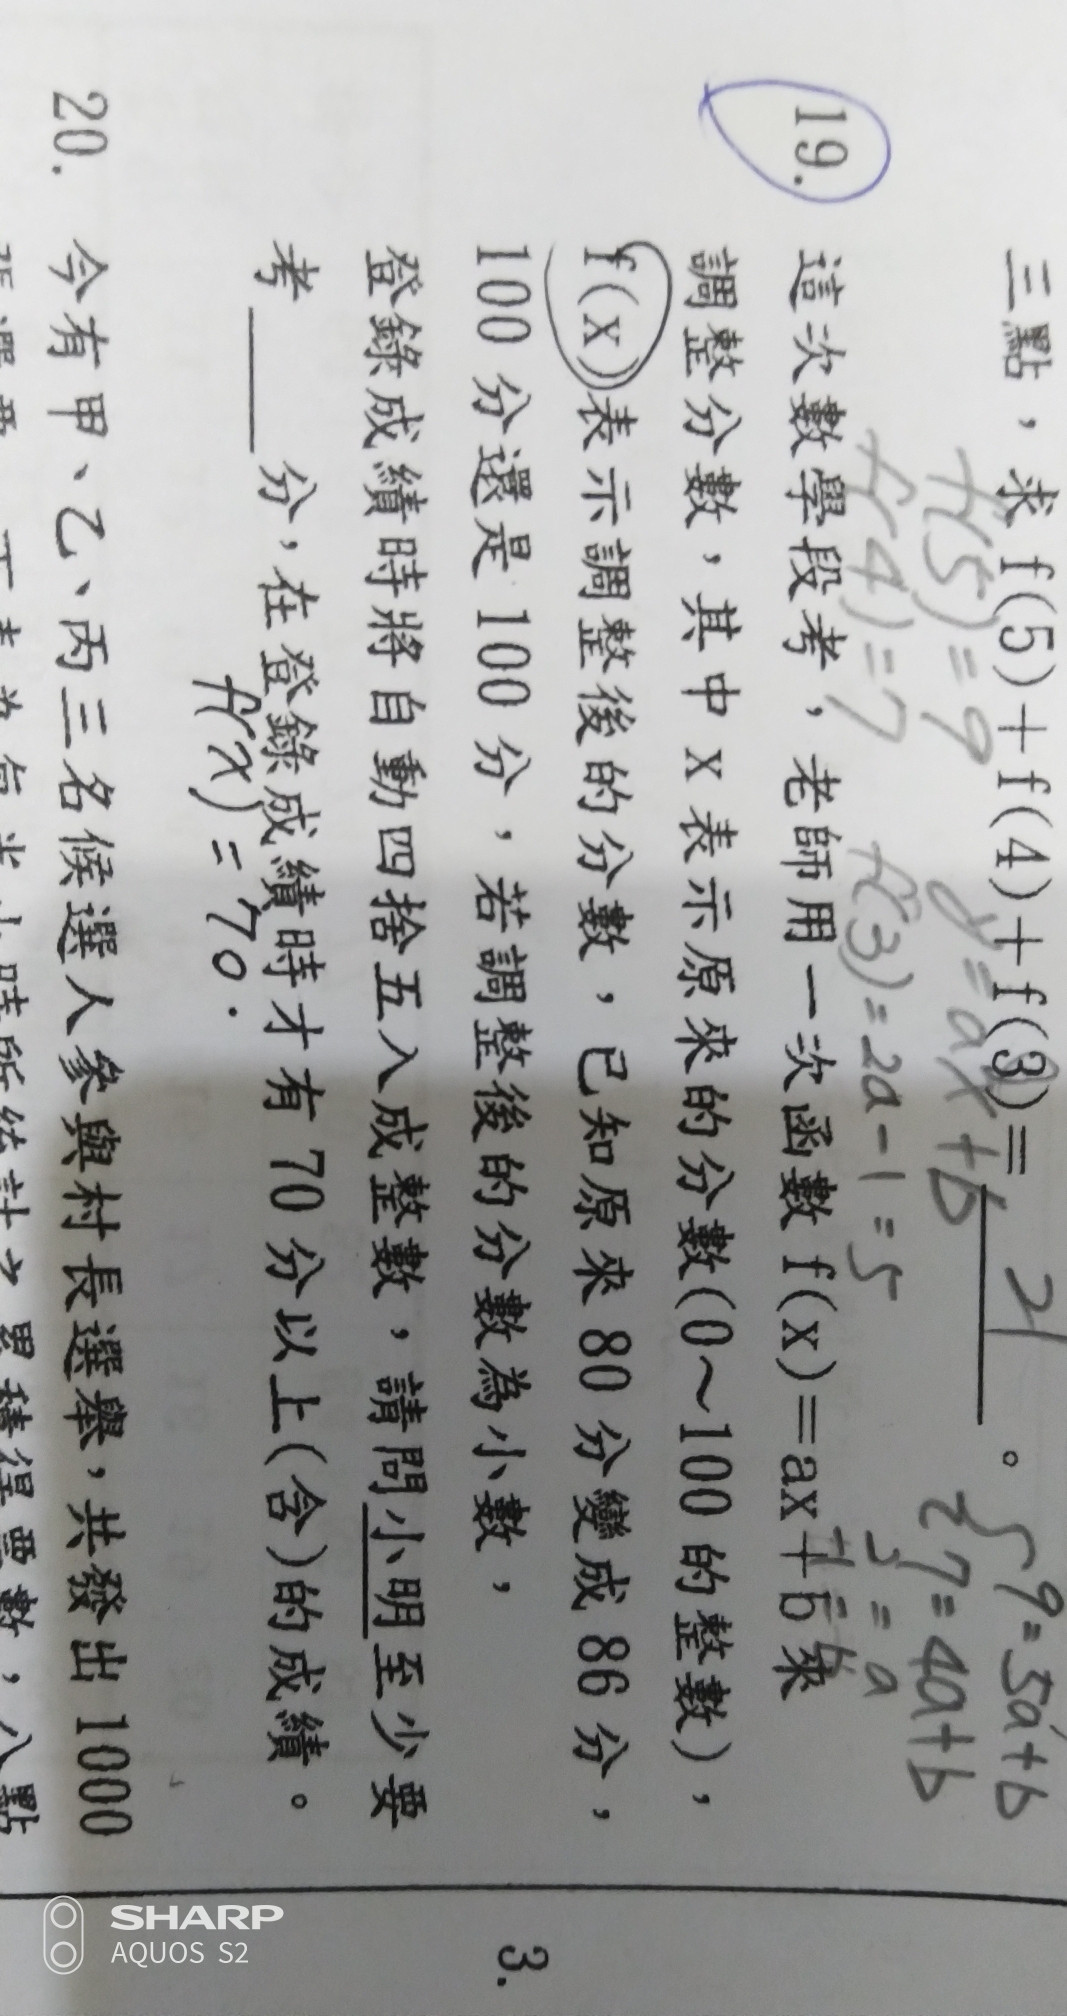 三點，求 f(5)+f(4)+f(3)= 21 。
f(5)=9 y=ax+b { 9=5a+b
7=4a+b
f(4)=7 f(3)=2a-1=5 2=a
-1=b
19. 這次數學段考，老師用一次函數 f(x)=ax+b 來
調整分數，其中 x 表示原來的分數(0～100 的整數)，
f(x)表示調整後的分數，已知原來 80 分變成 86 分，
100 分還是 100 分，若調整後的分數為小數，
登錄成績時將自動四捨五入成整數，請問小明至少要
考 分，在登錄成績時才有 70 分以上(含)的成績。
f(x)=70.
20. 今有甲、乙、丙三名候選人參與村長選舉，共發出 1000
3.
SHARP
AQUOS S2